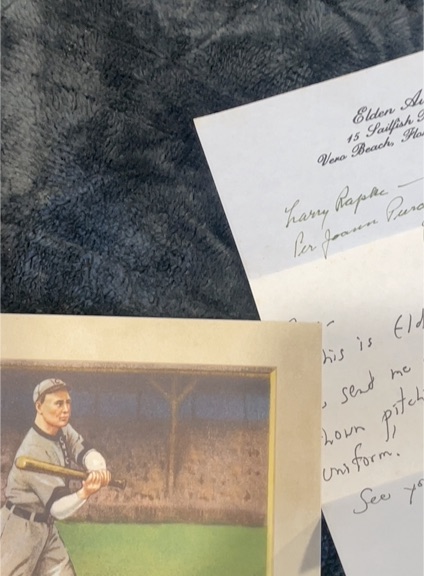 Elden Au
15 Sailfish
Vero Beach, Flo
Larry Rapke —
Per Joann
his is Eld
send me
hown pitchi
uniform!
See yo